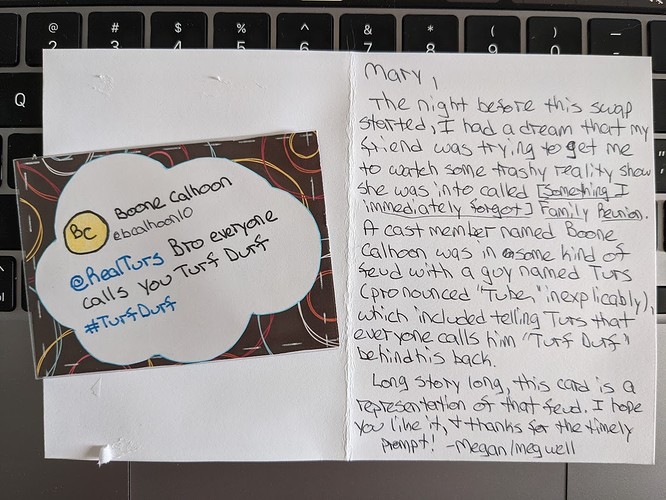 @ # $ % ^ & * ( ) —
2 3 4 5 6 7 8 9 0 -
Q
BC
Boone Calhoon
@bcalhoon10
@RealTurs Bro everyone
calls you Turf Durf
#TurfDurf
Mary,
The night before this swap
started, I had a dream that my
friend was trying to get me
to watch some trashy reality show
she was into called [something I
immediately forgot] Family Reunion.
A cast member named Boone
Calhoon was in some kind of
feud with a guy named Turs
(pronounced "Tuber" inexplicably),
which included telling Turs that
everyone calls him "Turf Durf"
behind his back.
Long story long, this card is a
representation of that feud. I hope
you like it, + thanks for the timely
prompt! -Megan/megwell